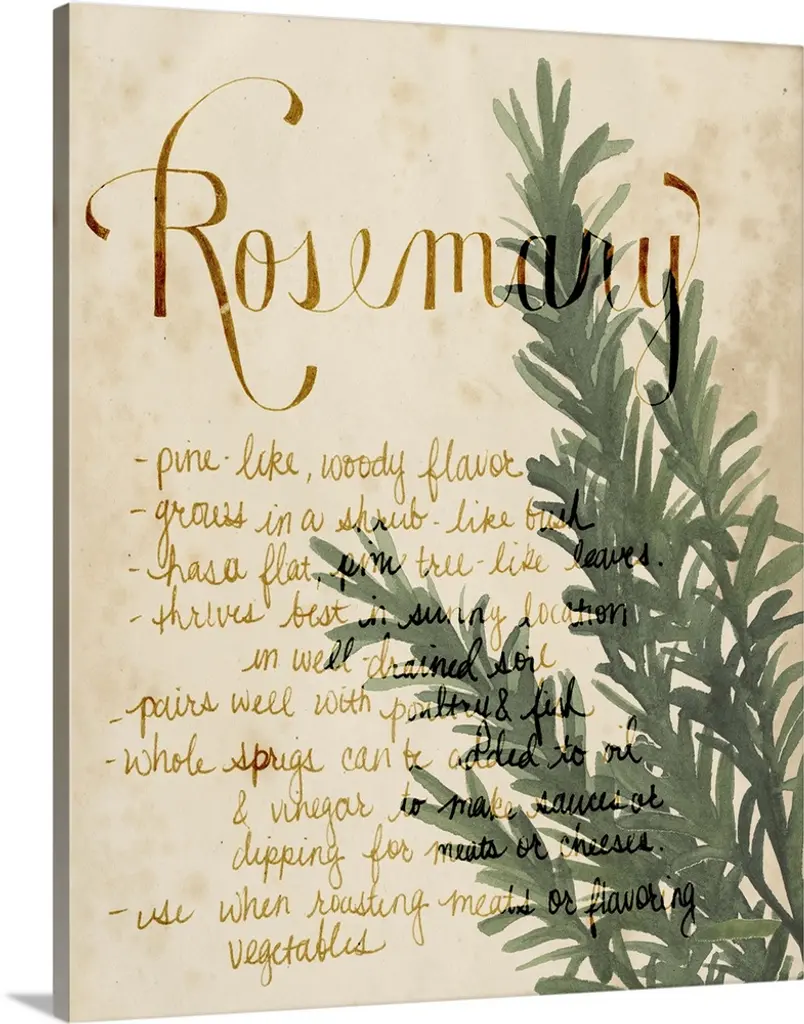 Rosemary
- pine-like, woody flavor
- grows in a shrub-like bush
- has a flat, pine tree-like leaves.
- thrives best in sunny location
in well-drained soil
- pairs well with poultry & fish
- whole sprigs can be added to oil
& vinegar to make sauces or
dipping for meats or cheeses.
- use when roasting meats or flavoring
vegetables